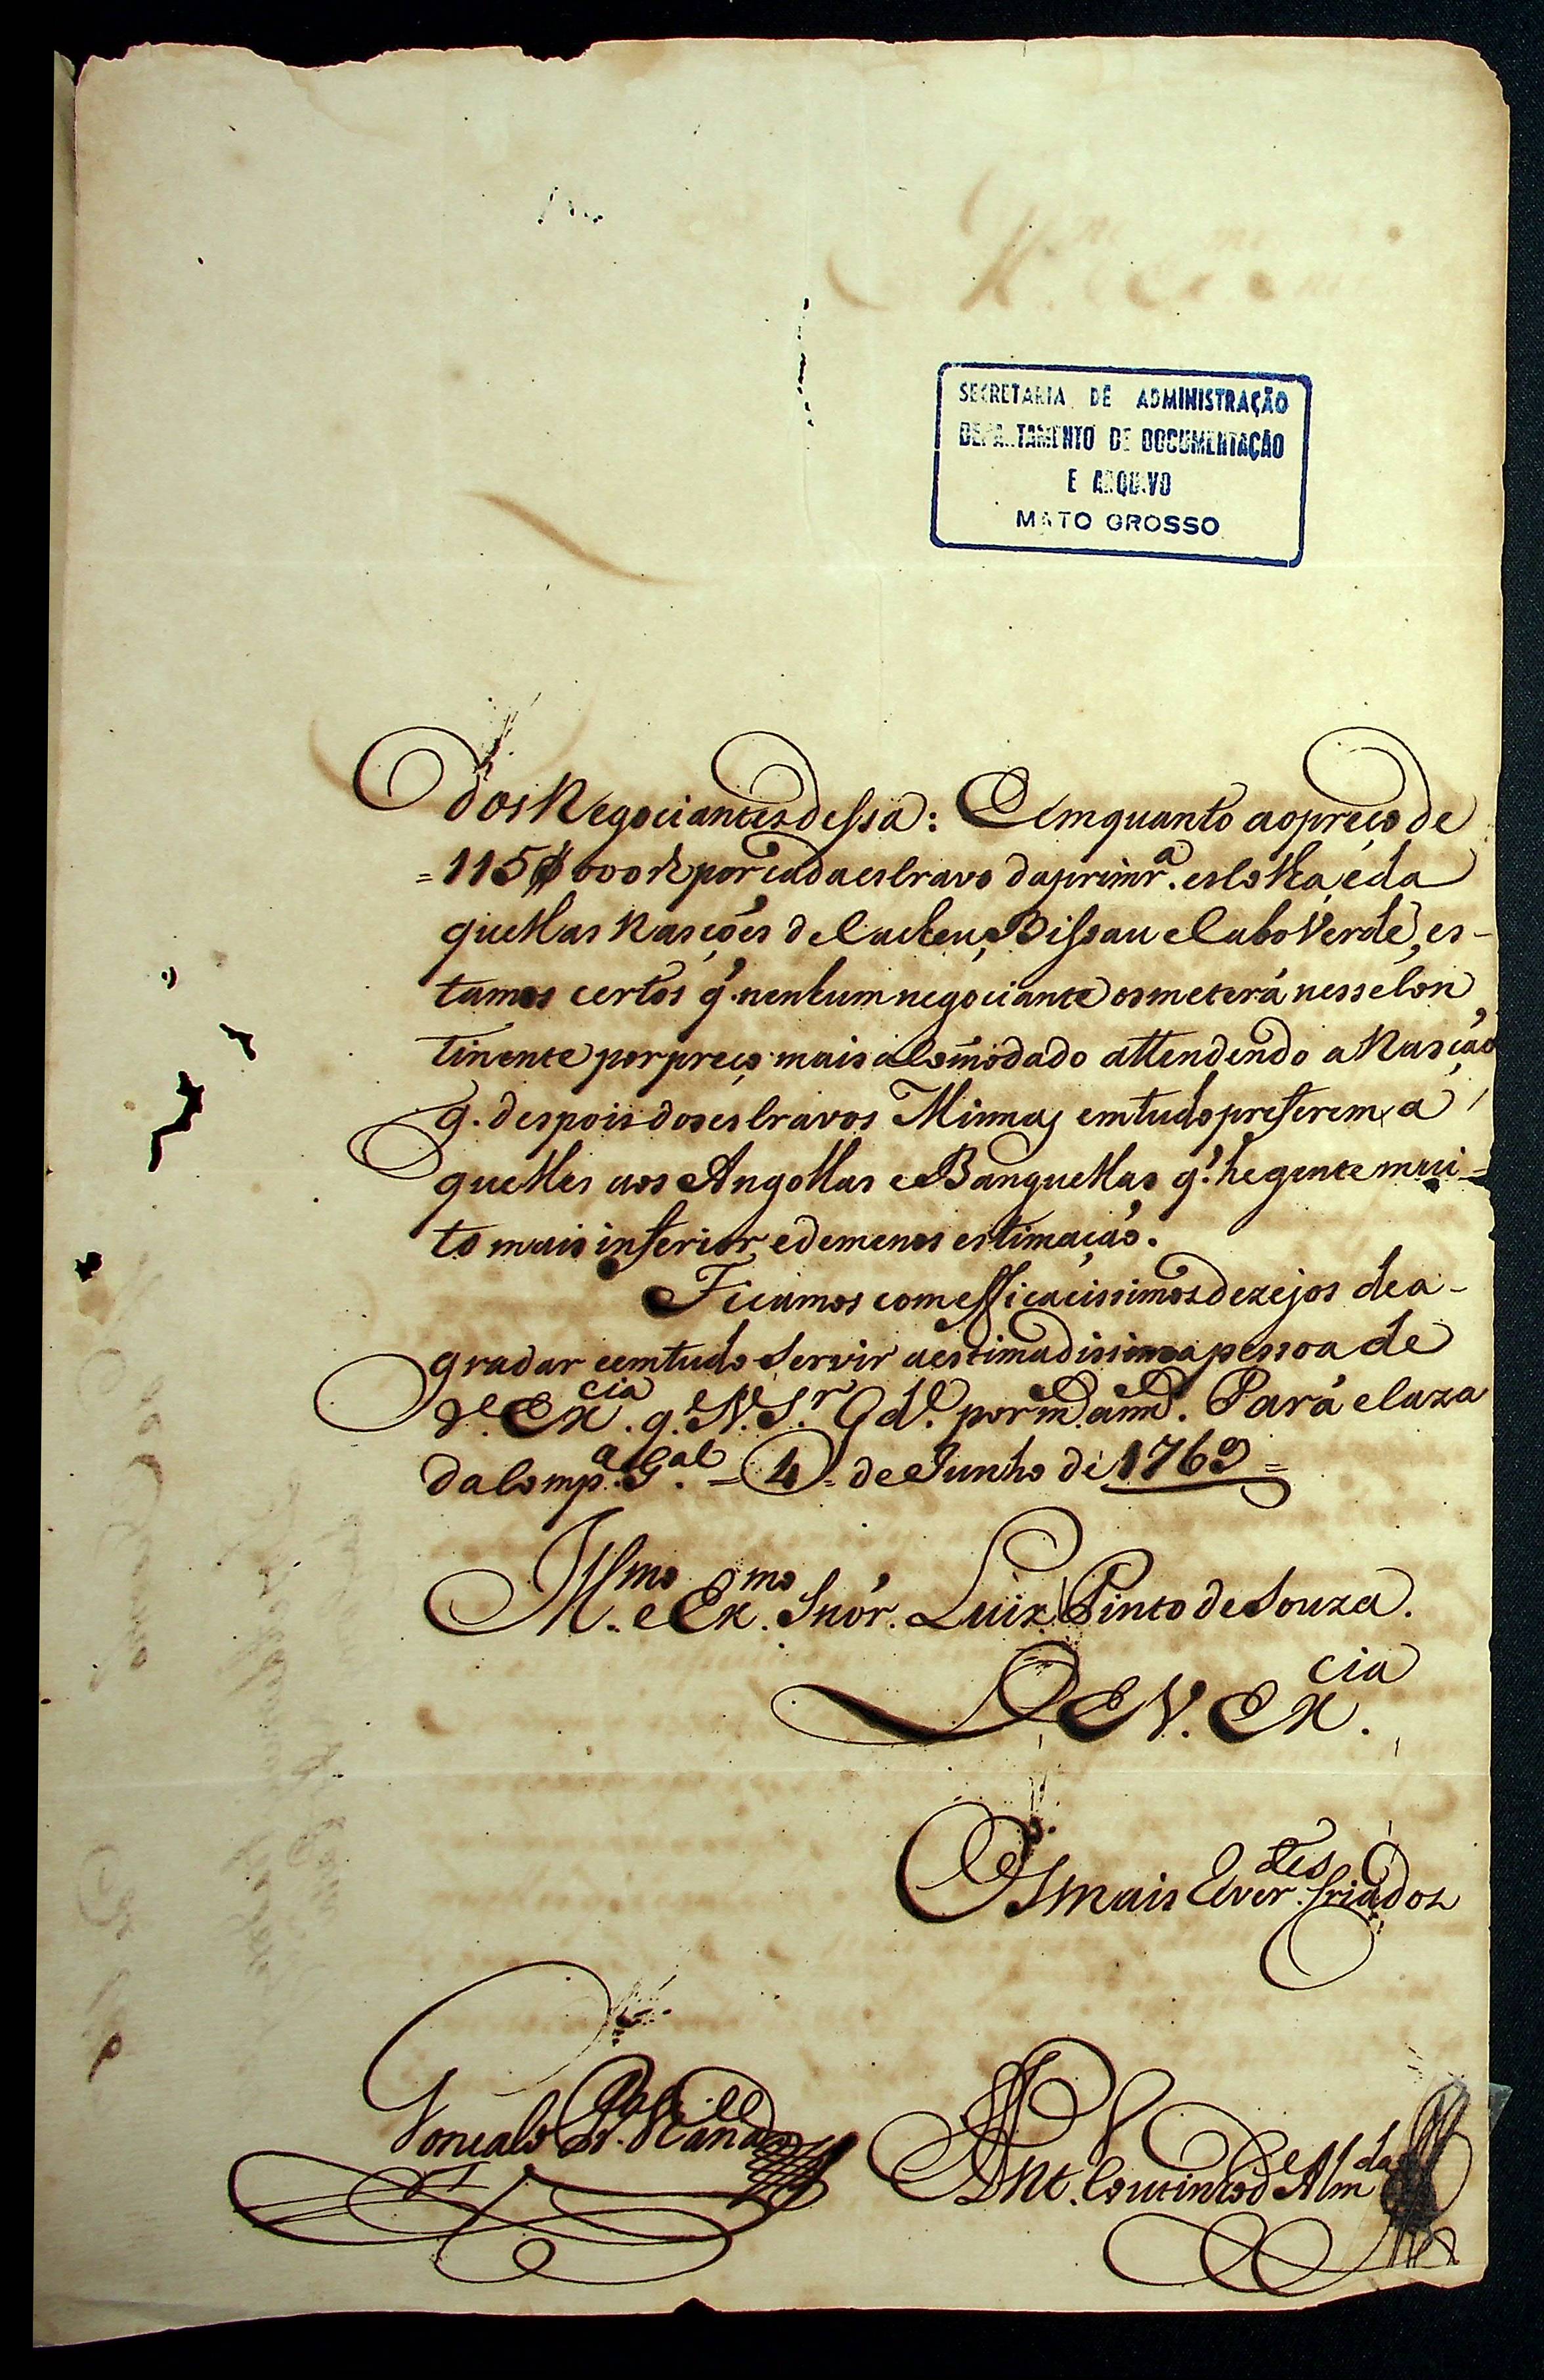 SECRETARIA DE ADMINISTRAÇÃO
DEPARTAMENTO DE DOCUMENTAÇÃO
E ARQUIVO
MATO GROSSO
dos Negociantes dessa: E emquanto ao preço de
=115$000 r. por cada escravo da primr.ª escolha, e da
quellas Nasções de Cacheu, Bissau e Cabo Verde, es-
tamos certos q.' nenhum negociante os meterá nesse Con
tinente por preço mais acõmodado attendendo a Nasção
q. despois dos escravos Minnas em tudo preferem a
quelles aos Angollas e Banguellas q.' he gente mui-
to mais inferior, e de menos estimação.
Ficamos com efficacissimos dezejos de a-
gradar e em tudo servir a estimadissima pessoa de
V. Ex.cia q. N. S.r G.de por m. ann. Pará e Caza
da Comp.ª G.al = 4 = de Junho de 1769 =
Ill.mo e Ex.mo Snór. Luiz Pinto de Souza.
DE V. EX.cia
Os mais Rever.tes Criados
Gonçalo
Ant. Coutinho d Alm.da